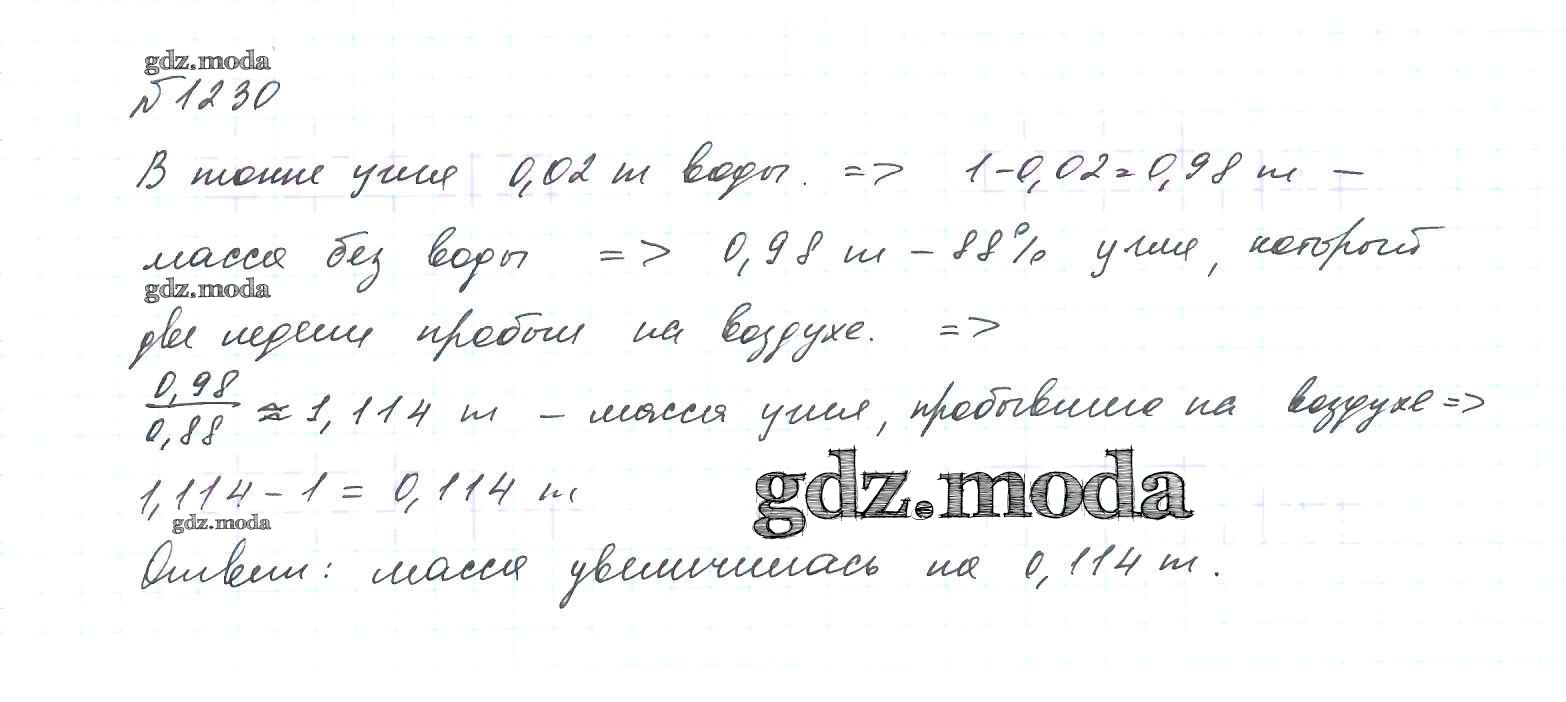 gdz.moda
№1230
В тонне угля 0,02 т воды. => 1-0,02=0,98 т -
масса без воды => 0,98 т - 88% угля, который
gdz.moda
две недели пробыл на воздухе. =>
0,98/0,88 ≈ 1,114 т - масса угля, пробывшего на воздухе =>
1,114 - 1 = 0,114 т
gdz.moda
gdz.moda
Ответ: масса увеличилась на 0,114 т.